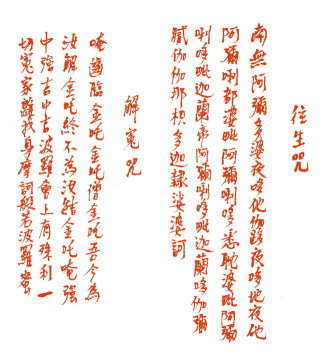 往生咒
南無阿彌多婆夜哆他伽跢夜哆地夜他
阿彌唎都婆毗阿彌唎哆悉耽婆毗阿彌
唎哆毗迦蘭帝阿彌唎哆毗迦蘭哆伽彌
膩伽伽那枳多迦隸娑婆訶
解冤咒
唵齒臨金吒金吒僧金吒吾今為
汝解金吒終不為汝結金吒唵強
中強吉中吉波羅會上有殊利一
切冤家離我身摩訶般若波羅蜜